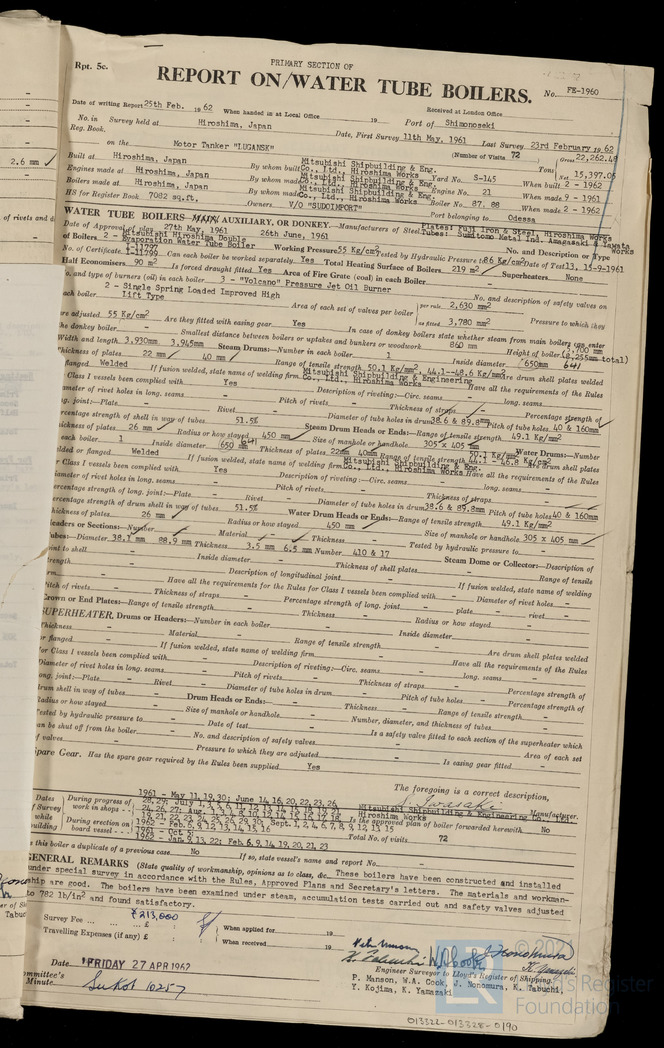 Rpt. 5c.
PRIMARY SECTION OF
REPORT ON/WATER TUBE BOILERS.
No. FE-1960
Date of writing Report 25th Feb. 1962 When handed in at Local Office 19 Received at London Office
No. in Survey held at Hiroshima, Japan Port of Shimonoseki
Reg. Book. Date, First Survey 11th May, 1961 Last Survey 23rd February 1962
on the Motor Tanker "LUGANSK" (Number of Visits 72 Gross 22,262.48
Tons
Net 15,397.06
Built at Hiroshima, Japan By whom built Mitsubishi Shipbuilding & Eng. Co., Ltd. Hiroshima Works Yard No. S-145 When built 2 - 1962
Engines made at Hiroshima, Japan By whom made Mitsubishi Shipbuilding & Eng. Co., Ltd., Hiroshima Works Engine No. 21 When made 9 - 1961
Boilers made at Hiroshima, Japan By whom made Mitsubishi Shipbuilding & Eng. Co., Ltd., Hiroshima Works Boiler No. 87. 88 When made 2 - 1962
HS for Register Book 7082 sq.ft. Owners V/O "SUDOIMPORT" Port belonging to Odessa
WATER TUBE BOILERS MAIN, AUXILIARY, OR DONKEY.—Manufacturers of Steel Plates: Fuji Iron & Steel, Hirohata Works Tubes: Sumitomo Metal Ind. Amagasaki & Yawata Works
Date of Approval of plan 27th May, 1961 26th June, 1961 No. and Description or Type
of Boilers 2 - Mitsubishi Hiroshima Double Evaporation Water Tube Boiler Working Pressure 55 Kg/cm² Tested by Hydraulic Pressure to 86 Kg/cm² Date of Test 13, 15-9-1961
No. of Certificate I-11797 I-11799 Can each boiler be worked separately Yes Total Heating Surface of Boilers 219 m² Superheaters None
Half Economisers 90 m² Is forced draught fitted Yes Area of Fire Grate (coal) in each Boiler -
No. and type of burners (oil) in each boiler 3 - "Volcano" Pressure Jet Oil Burner No. and description of safety valves on
each boiler 2 - Single Spring Loaded Improved High Lift Type Area of each set of valves per boiler per rule 2,630 mm² as fitted 3,780 mm² Pressure to which they
are adjusted 55 Kg/cm² Are they fitted with easing gear Yes In case of donkey boilers state whether steam from main boilers can enter
the donkey boiler - Smallest distance between boilers or uptakes and bunkers or woodwork 860 mm Height of boiler
Width and length 3,930mm 3,945mm Steam Drums:—Number in each boiler 1 Inside diameter 650mm 641
Thickness of plates 22 mm 40 mm Range of tensile strength 50.1 Kg/mm², 44.1-48.6 Kg/mm² Are drum shell plates welded
or flanged Welded If fusion welded, state name of welding firm Mitsubishi Shipbuilding & Engineering Co., Ltd., Hiroshima Works Have all the requirements of the Rules
for Class I vessels been complied with Yes Description of riveting:—Circ. seams - long. seams -
Diameter of rivet holes in long. seams - Pitch of rivets - Thickness of straps - Percentage strength of
long. joint:—Plate - Rivet - Diameter of tube holes in drum 38.6 & 89.8mm Pitch of tube holes 40 & 160mm
Percentage strength of shell in way of tubes 51.5% Steam Drum Heads or Ends:—Range of tensile strength 49.1 Kg/mm²
Thickness of plates 26 mm Radius or how stayed 450 mm Size of manhole or handhole 305 x 405 mm Water Drums:—Number
in each boiler 1 Inside diameter 650 mm Thickness of plates 22mm 40mm Range of tensile strength 50.1 Kg/mm² Are drum shell plates
welded or flanged Welded If fusion welded, state name of welding firm Mitsubishi Shipbuilding & Eng. Co., Ltd., Hiroshima Works Have all the requirements of the Rules
for Class I vessels been complied with Yes Description of riveting:—Circ. seams - long. seams -
Diameter of rivet holes in long. seams - Pitch of rivets - Thickness of straps -
Percentage strength of long. joint:—Plate - Rivet - Diameter of tube holes in drum 38.6 & 89.8mm Pitch of tube holes 40 & 160mm
Percentage strength of drum shell in way of tubes 51.5% Water Drum Heads or Ends:—Range of tensile strength 49.1 Kg/mm²
Thickness of plates 26 mm Radius or how stayed 450 mm Size of manhole or handhole 305 x 405 mm
Headers or Sections:—Number - Material - Thickness - Tested by hydraulic pressure to -
Tubes:—Diameter 38.1 mm 88.9 mm Thickness 3.5 mm 6.5 mm Number 410 & 17 Steam Dome or Collector:—Description of
joint to shell - Inside diameter - Thickness of shell plates - Range of tensile
strength - Description of longitudinal joint - If fusion welded, state name of welding
firm - Have all the requirements for the Rules for Class I vessels been complied with - Diameter of rivet holes -
Pitch of rivets - Thickness of straps - Percentage strength of long. joint - plate - rivet -
Crown or End Plates:—Range of tensile strength - Thickness - Radius or how stayed -
SUPERHEATER, Drums or Headers:—Number in each boiler - Inside diameter -
Thickness - Material - Range of tensile strength - Are drum shell plates welded
or flanged - If fusion welded, state name of welding firm - Have all the requirements of the Rules
for Class I vessels been complied with - Description of riveting:—Circ. seams - long. seams -
Diameter of rivet holes in long. seams - Pitch of rivets - Thickness of straps - Percentage strength of
long. joint:—Plate - Rivet - Diameter of tube holes in drum - Pitch of tube holes - Percentage strength of
drum shell in way of tubes - Drum Heads or Ends:—Thickness - Range of tensile strength -
Radius or how stayed - Size of manhole or handhole - Number, diameter, and thickness of tubes -
Tested by hydraulic pressure to - Date of test - Is a safety valve fitted to each section of the superheater which
can be shut off from the boiler - No. and description of safety valves - Area of each set
of valves - Pressure to which they are adjusted - Is easing gear fitted -
Spare Gear. Has the spare gear required by the Rules been supplied Yes
The foregoing is a correct description,
Mitsubishi Shipbuilding & Engineering Co., Hiroshima Works Manufacturer.
Dates of Survey while building
During progress of work in shops - - 1961 - May 11, 19, 30; June 14, 16, 20, 22, 23, 26,
During erection on board vessel - - -
1961 - Oct 5;
1962 - Jan 9, 13, 22; Feb 6, 9, 14, 19, 20, 21, 23
Is the approved plan of boiler forwarded herewith No
Total No. of visits 72
Is this boiler a duplicate of a previous case No If so, state vessel's name and report No. -
GENERAL REMARKS (State quality of workmanship, opinions as to class, &c. These boilers have been constructed and installed
under special survey in accordance with the Rules, Approved Plans and Secretary's letters. The materials and workman-
ship are good. The boilers have been examined under steam, accumulation tests carried out and safety valves adjusted
to 782 lb/in² and found satisfactory.
Survey Fee ... ... ¥213,000 When applied for 19
Travelling Expenses (if any) £ : : When received 19
Engineer Surveyor to Lloyd's Register of Shipping.
P. Manson, W.A. Cook, J. Nonomura, K. Tabuchi,
Y. Kojima, K. Yamazaki
Date FRIDAY 27 APR 1962
Committee's Minute
© 2021
Lloyd's Register Foundation
013322-013328-0190